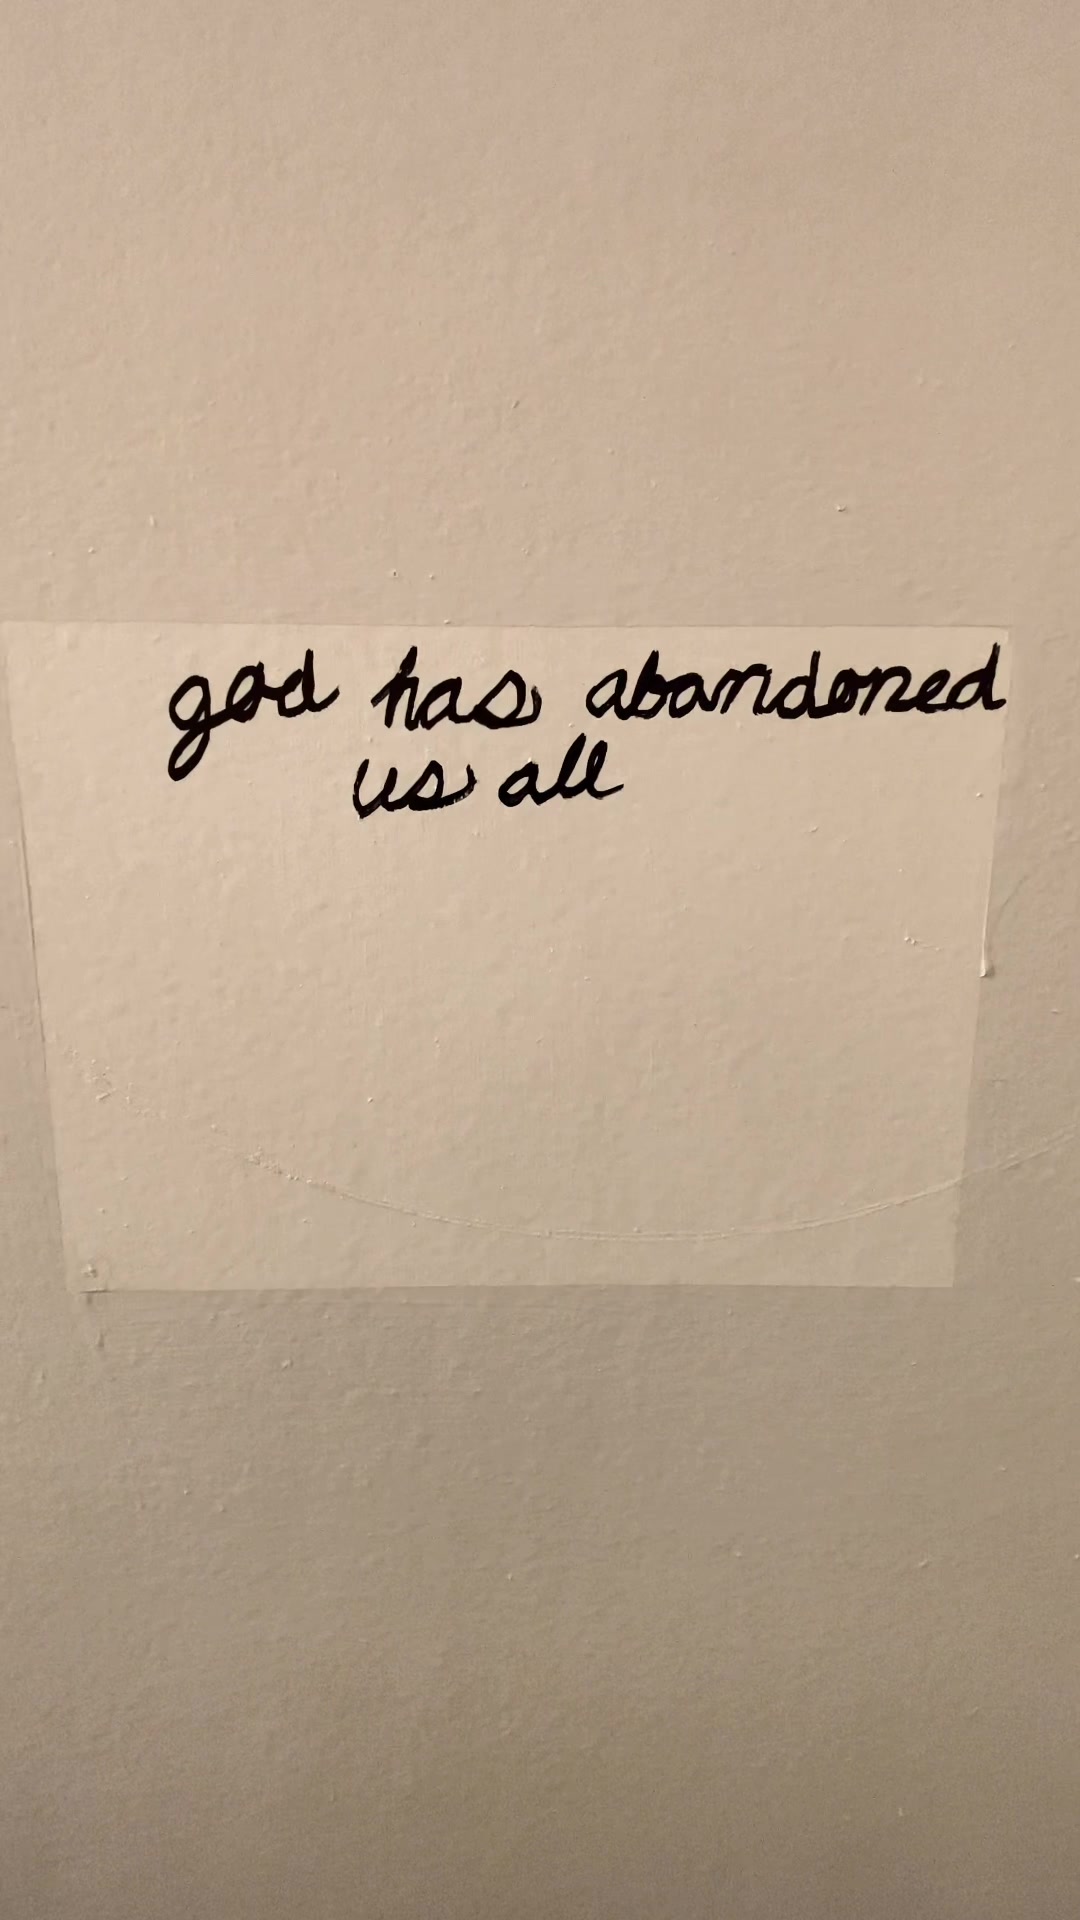 god has abandoned
us all